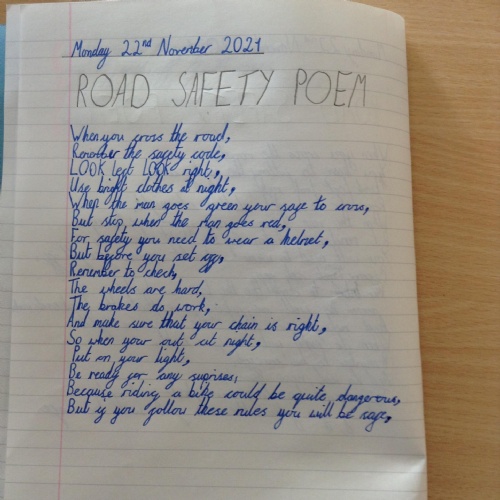 Monday 22nd November 2021
ROAD SAFETY POEM
When you cross the road,
Remember the safety code,
LOOK left LOOK right,
Use bright clothes at night,
When the man goes green your safe to cross,
But stop when the man goes red,
For safety you need to wear a helmet,
But before you set off,
Remember to check,
The wheels are hard,
The brakes do work,
And make sure that your chain is right,
So when your out at night,
Put on your light,
Be ready for any suprises,
Because riding a bike could be quite dangerous,
But if you follow these rules you will be safe,